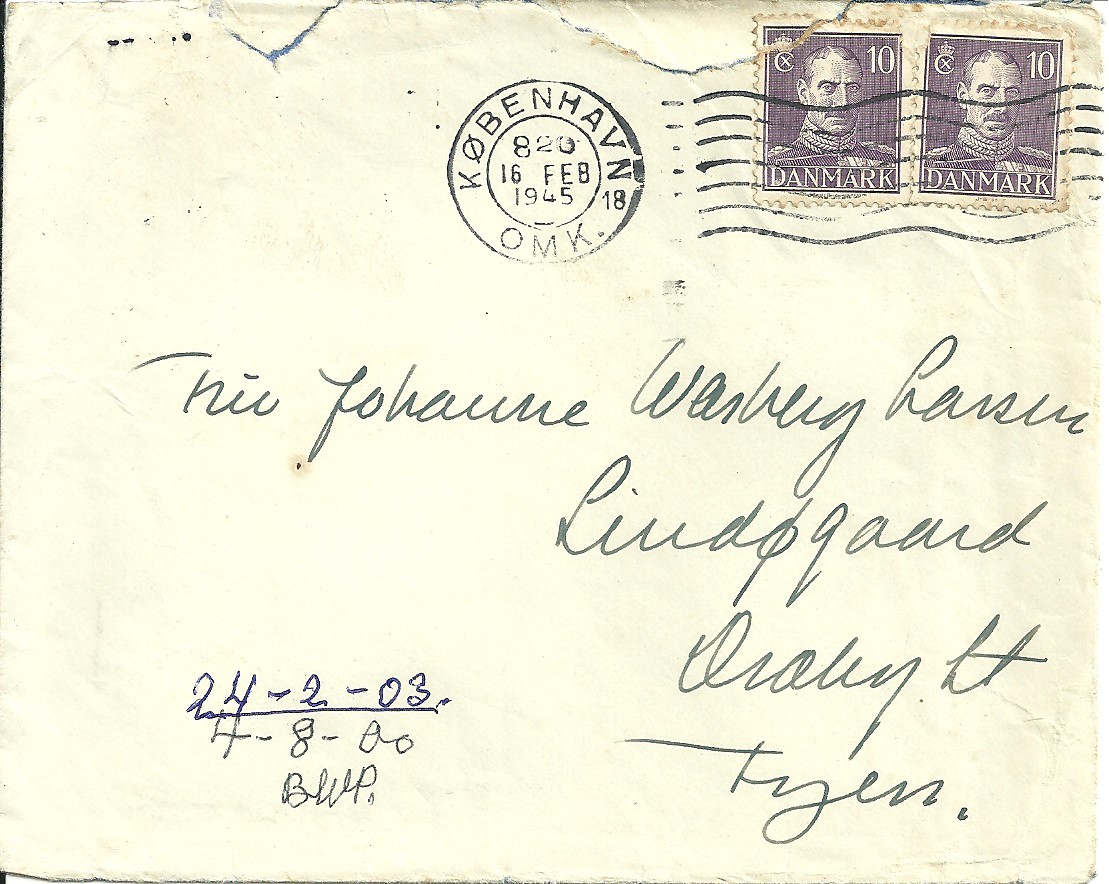 10 10
DANMARK DANMARK
KØBENHAVN
820
16 FEB
1945
18
OMK.
Fru Johanne Warberg Larsen
Lindøgaard
Dræby St
Fyen.
24-2-03.
4-8-00
BWP.